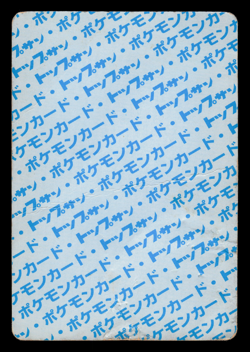 ポケモンカード・
トップサン・ポケモンカード
ポケモンカード・トップサン・
トップサン・ポケモンカード・
ポケモンカード・トップサン・
・トップサン・ポケモンカード
ポケモンカード・トップサン・
トップサン・ポケモンカード・
ポケモンカード・トップサン・
・トップサン・ポケモンカード
ポケモンカード・トップサン・
トップサン・ポケモンカード・
ポケモンカード・トップサン
・ポケモンカード